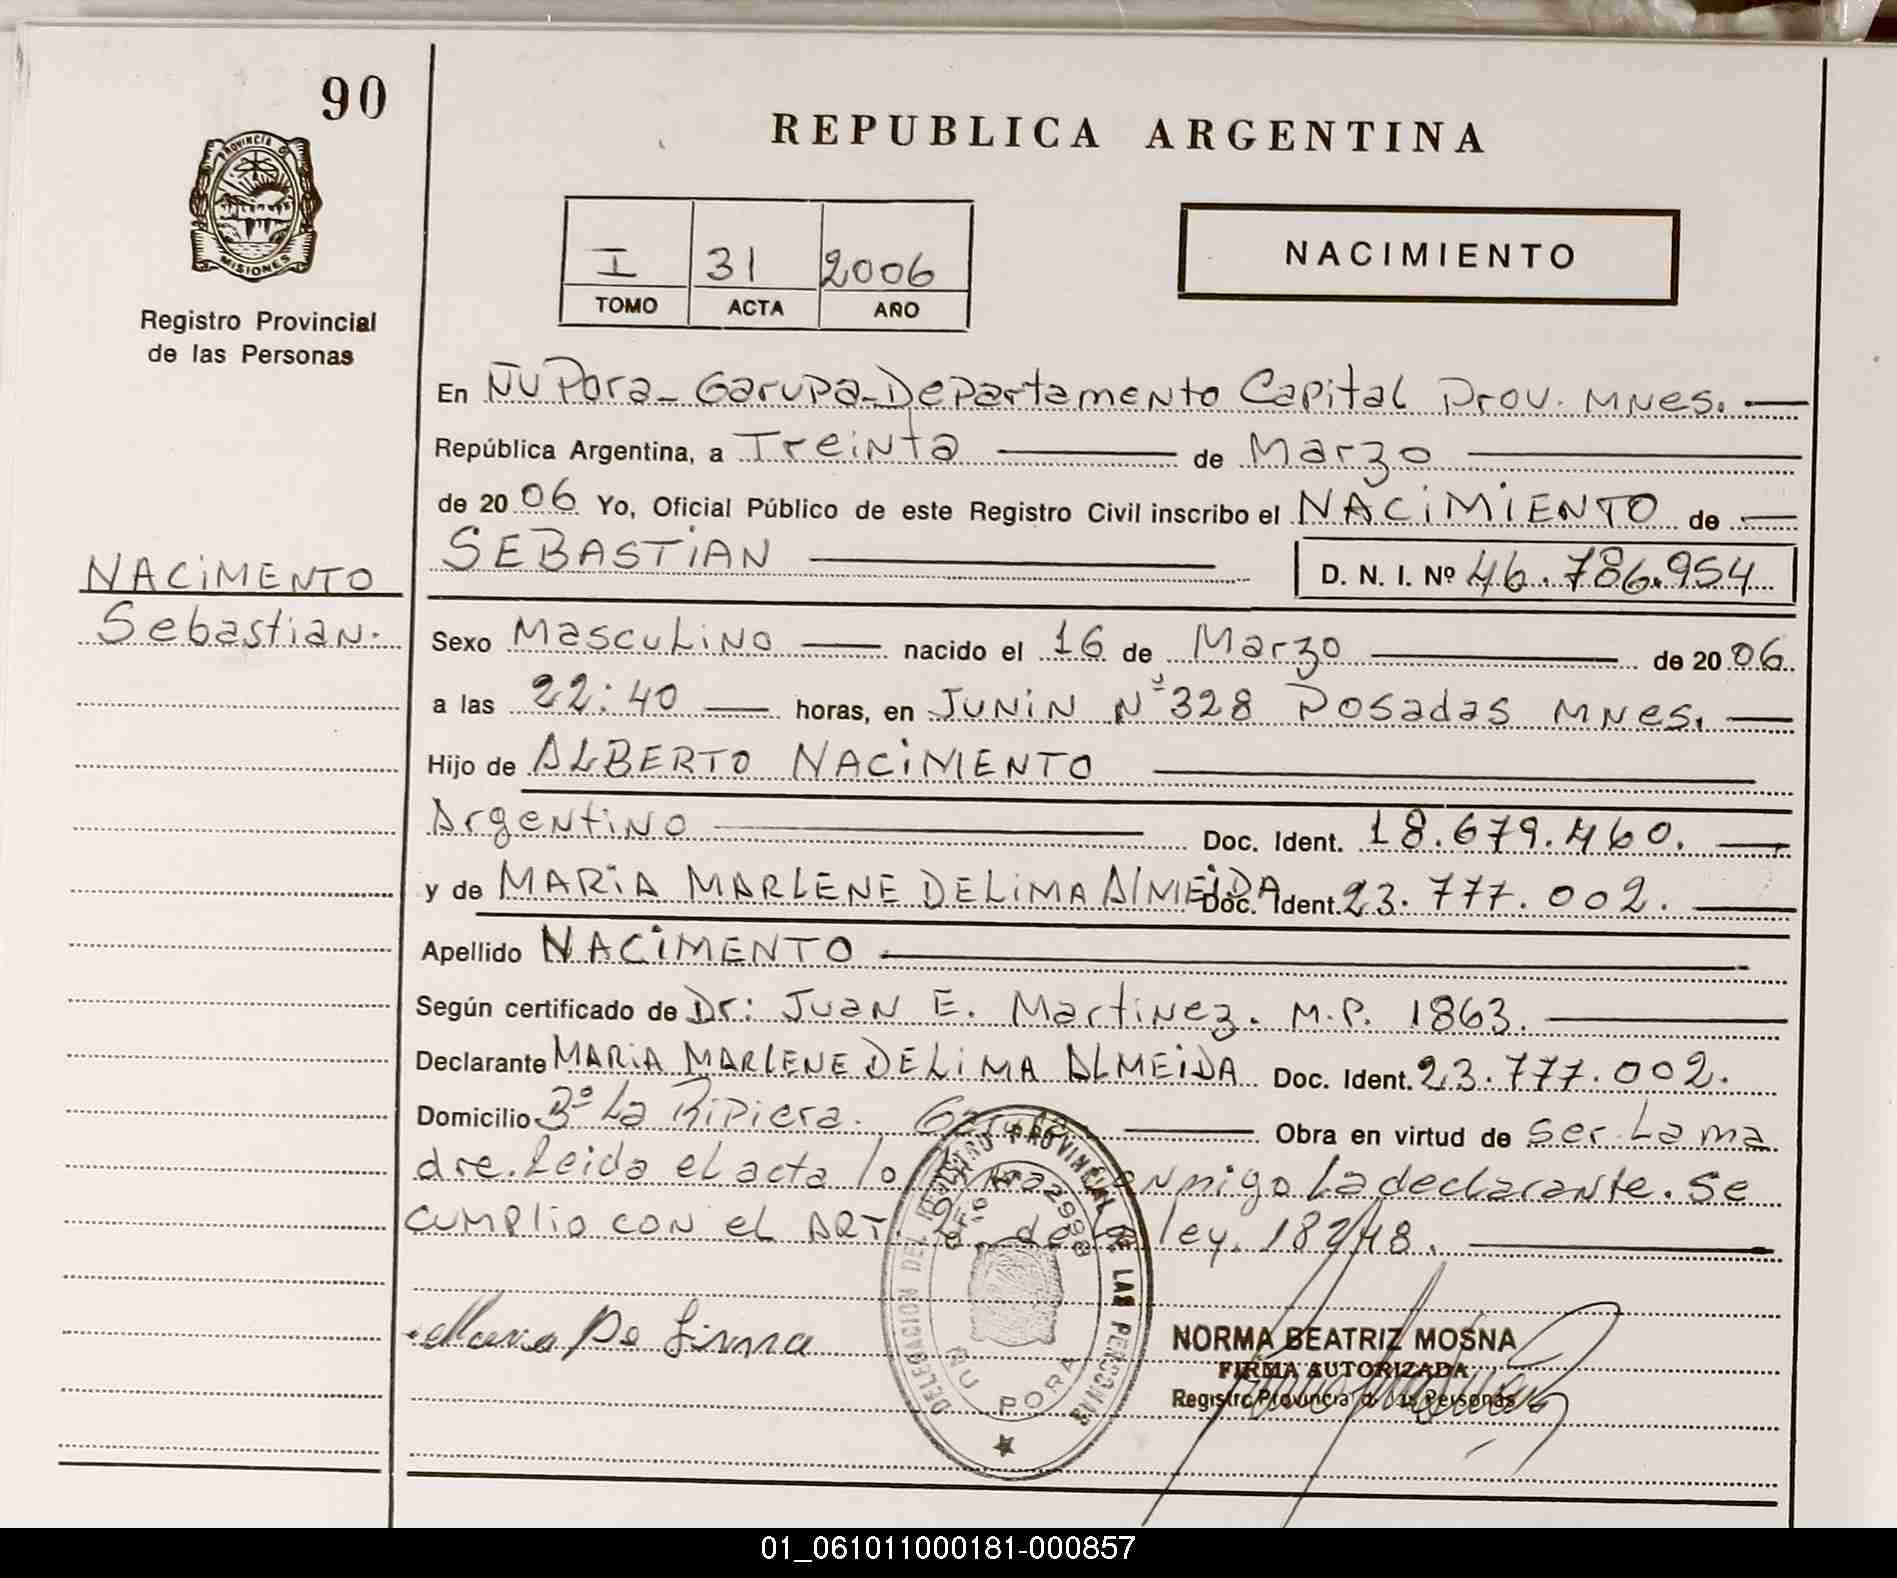 90
REPUBLICA ARGENTINA
PROVINCIA D
MISIONES
Registro Provincial
de las Personas
I 31 2006
TOMO ACTA AÑO
NACIMIENTO
En ÑU Pora - Garupa - Departamento Capital Prov. MNes.
República Argentina, a Treinta de Marzo
de 2006 Yo, Oficial Público de este Registro Civil inscribo el NACIMIENTO de
SEBASTIAN D. N. I. Nº 46.786.954
NACIMENTO
Sebastian.
Sexo Masculino nacido el 16 de Marzo de 2006.
a las 22:40 horas, en JUNIN Nº 328 Posadas MNes.
Hijo de ALBERTO NACIMENTO
Argentino Doc. Ident. 18.679.460.
y de MARIA MARLENE DE LIMA ALMEIDA Doc. Ident. 23.777.002.
Apellido NACIMENTO
Según certificado de Dr: Juan E. Martinez. M.P. 1863.
Declarante MARIA MARLENE DE LIMA ALMEIDA Doc. Ident. 23.777.002.
Domicilio Bº La Ripiera. Obra en virtud de ser La ma
dre. Leida el acta lo conmigo La declarante. Se
cumplio con el ART. 2º de la ley. 18248.
DELEGACION DEL REGISTRO PROVINCIAL DE LAS PERSONAS
ÑU PORA
Maria De Lima
NORMA BEATRIZ MOSNA
FIRMA AUTORIZADA
Registro Provincial de las Personas
01_061011000181-000857